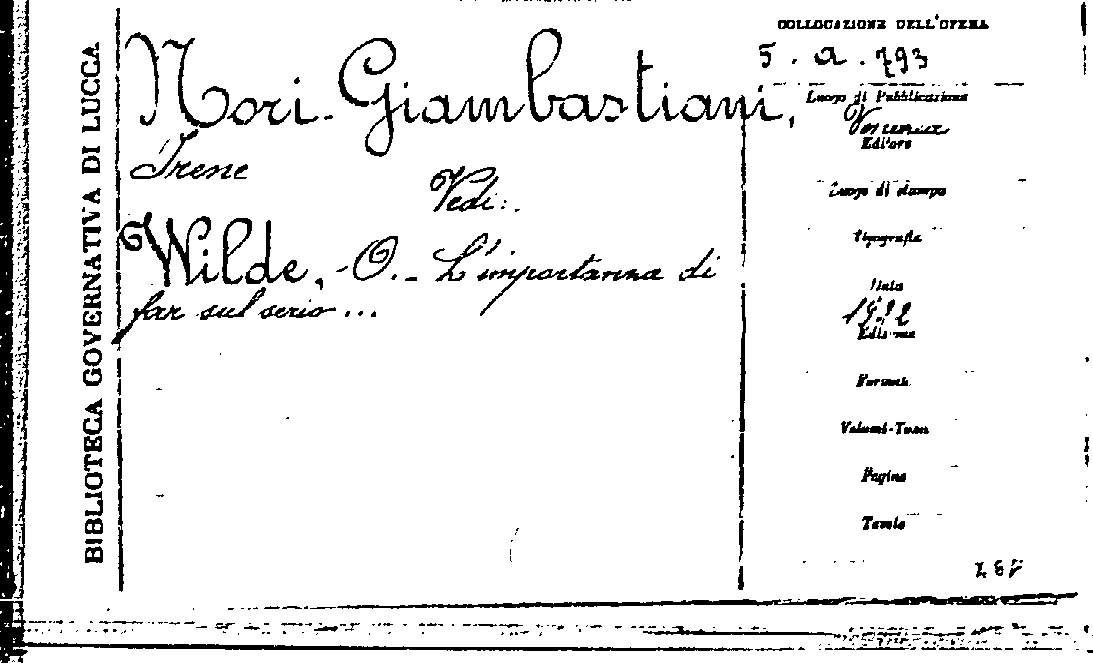 BIBLIOTECA GOVERNATIVA DI LUCCA
Nori-Giambastiani,
Irene
Vedi:
Wilde, O. - L'importanza di
far sul serio...
COLLOCAZIONE DELL'OPERA
5. a. 793
Luogo di Pubblicazione
Editore
Luogo di stampa
Tipografia
Data
1922
Edizione
Formato
Volumi-Tomi
Pagine
Tavole